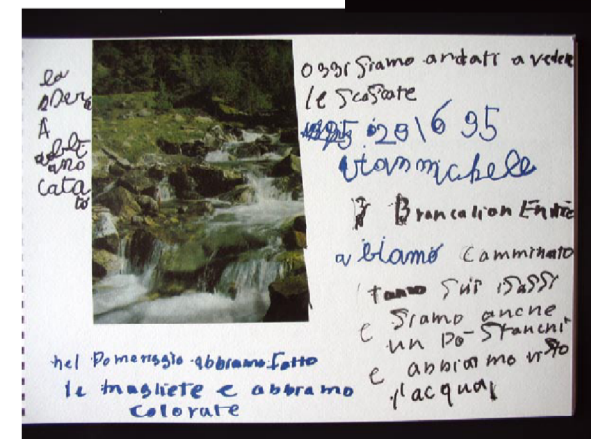 la
sera
A
cata
to
oggi siamo andati a vedere
le scascate
29\6 95
Gianmichele
Brancalion Enrico
abiamo camminato
tanto sui isassi
e siamo anche
un po- stanchi
e abbiamo visto
l'acqua
nel Pomeriggio abbiamo fatto
le magliete e abbiamo
colorate